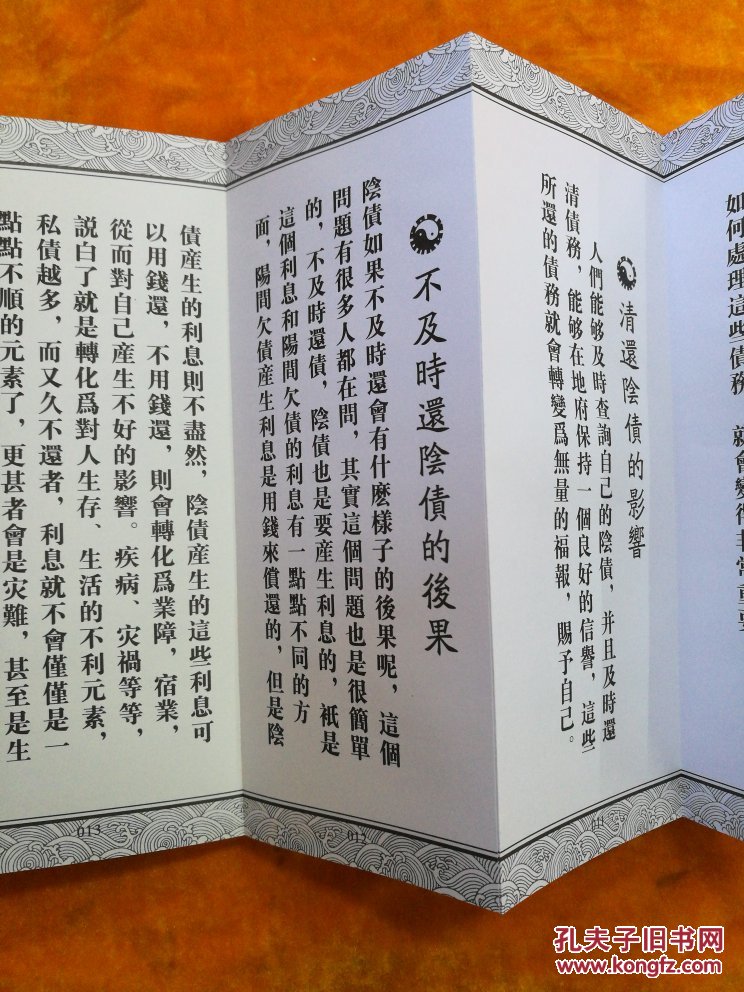 如何處理這些債務，就會變得非常重要
清還陰債的影響
人們能够及時查詢自己的陰債，并且及時還
清債務，能够在地府保持一個良好的信譽，這些
所還的債務就會轉變爲無量的福報，賜予自己。
011
不及時還陰債的後果
陰債如果不及時還會有什麽樣子的後果呢，這個
問題有很多人都在問，其實這個問題也是很簡單
的，不及時還債，陰債也是要産生利息的，衹是
這個利息和陽間欠債的利息有一點點不同的方
面，陽間欠債産生利息是用錢來償還的，但是陰
012
債産生的利息則不盡然，陰債産生的這些利息可
以用錢還，不用錢還，則會轉化爲業障，宿業，
從而對自己産生不好的影響。疾病、灾禍等等，
説白了就是轉化爲對人生存、生活的不利元素，
私債越多，而又久不還者，利息就不會僅僅是一
點點不順的元素了，更甚者會是灾難，甚至是生
013
孔夫子旧书网
www.kongfz.com